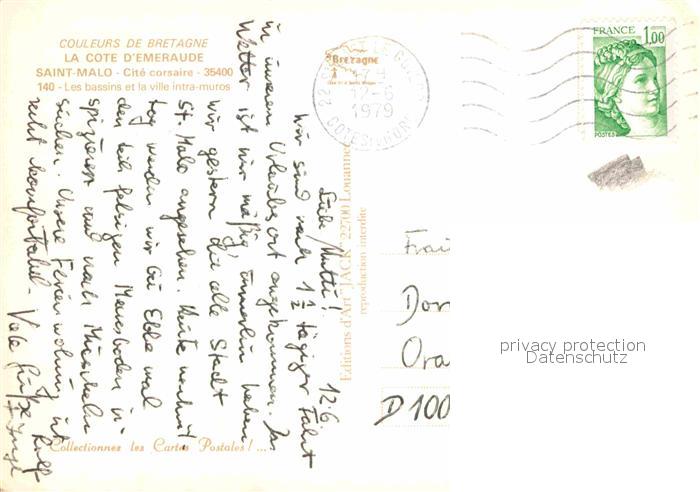 COULEURS DE BRETAGNE
LA COTE D'EMERAUDE
SAINT-MALO - Cité corsaire - 35400
140 - Les bassins et la ville intra-muros
Bretagne
12-6
1979
COTES DU NORD
FRANCE
1,00
POSTES
12.6.
Liebe Mutti!
Wir sind nach 1½ tägiger Fahrt
in unserem Urlaubsort angekommen. Das
Wetter ist nur mäßig, immerhin haben
wir gestern die alte Stadt
St. Malo angesehen. Heute nachmit-
tag werden wir bei Ebbe mal
den teils felsigen Meeresboden in-
spizieren und nach Muscheln
suchen. Unsere Ferienwohnung ist
recht komfortabel. Viele Grüße Rolf
Editions d'Art "JACK" 22700 Louannec
reproduction interdite
Frau
Dor
Ora
D 100
privacy protection
Datenschutz
Collectionnez les Cartes Postales ! ...